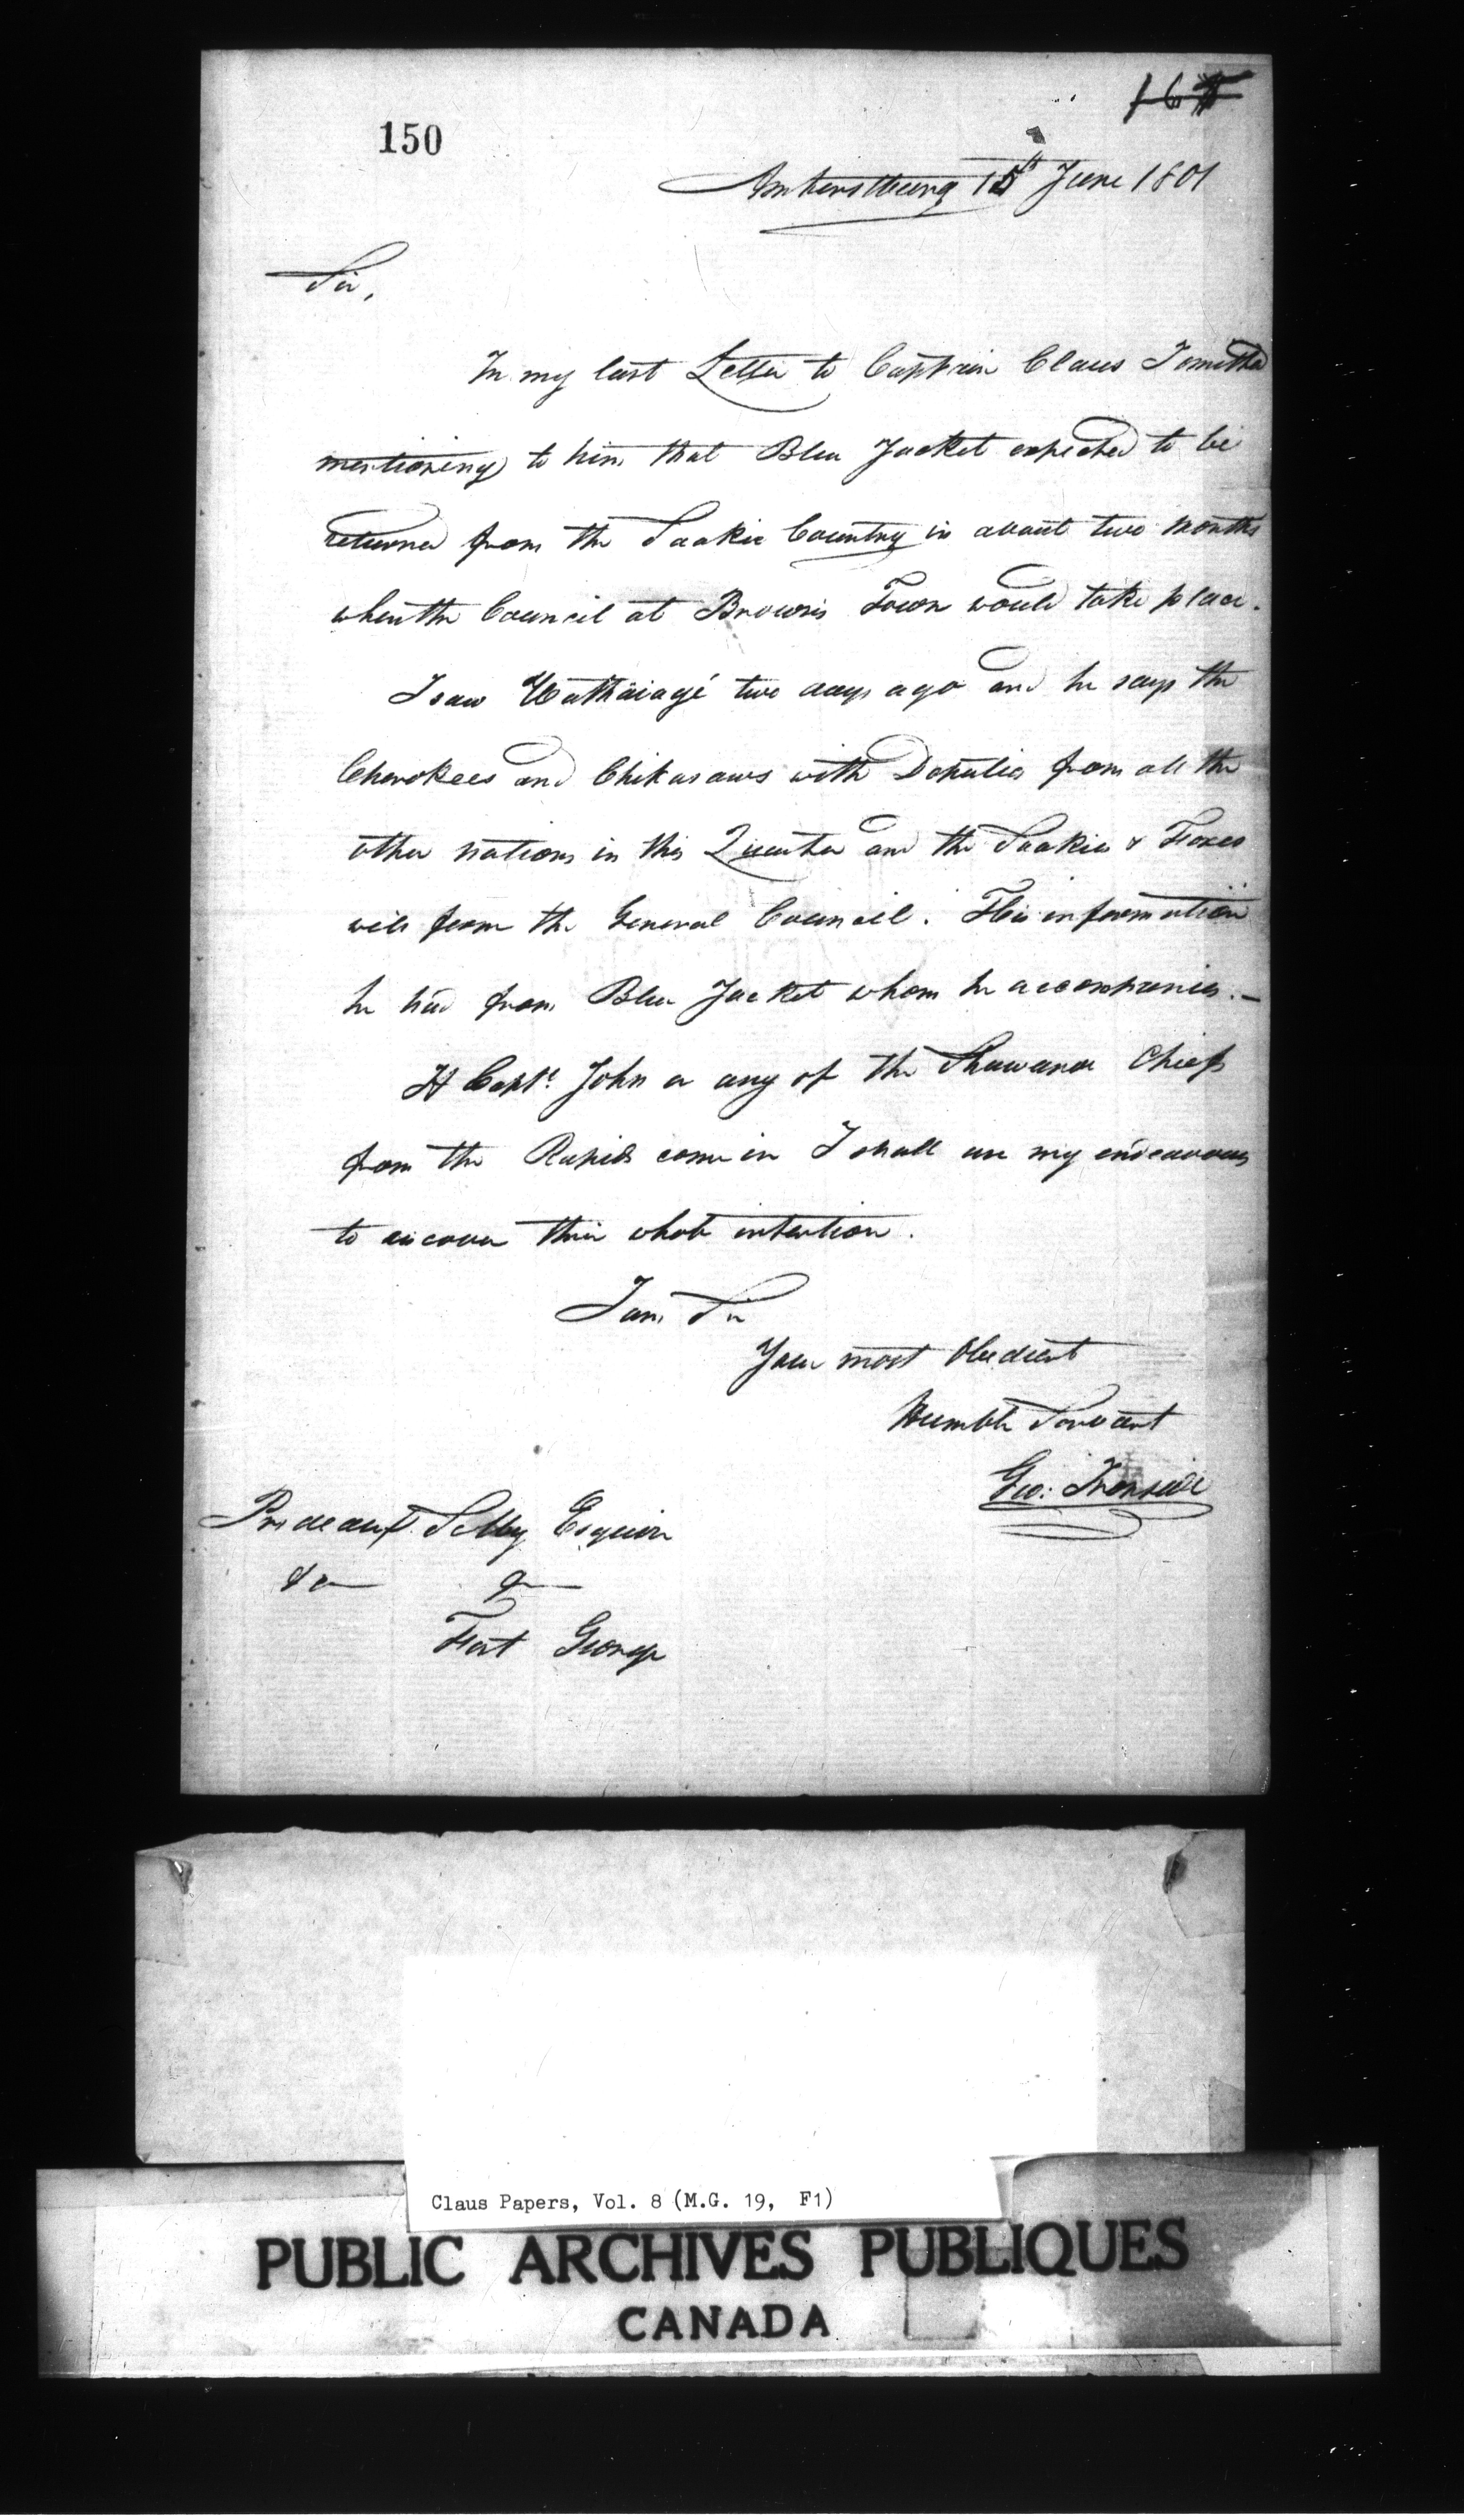 150
Amherstburg 15th June 1801
Sir,
In my last Letter to Captain Claus I omitted
mentioning to him that Blue Jacket expected to be
returned from the Saakie Country in about two months
when the Council at Browns Town would take place.
I saw two days ago and he says the
Cherokees and Chikasaws with Deputies from all the
other nations in this Quarter and the Saakies & Foxes
will form the General Council. This information
he had from Blue Jacket whom he accompanies.—
If Capt. John or any of the Shawanoe Chiefs
from the Rapids come in I shall use my endeavours
to discover their whole intention.
I am Sir
Your most Obedient
Humble Servant
Geo: Ironside
Prideaux Selby Esquire
&c
Fort George
Claus Papers, Vol. 8 (M.G. 19, F1)
PUBLIC ARCHIVES PUBLIQUES
CANADA